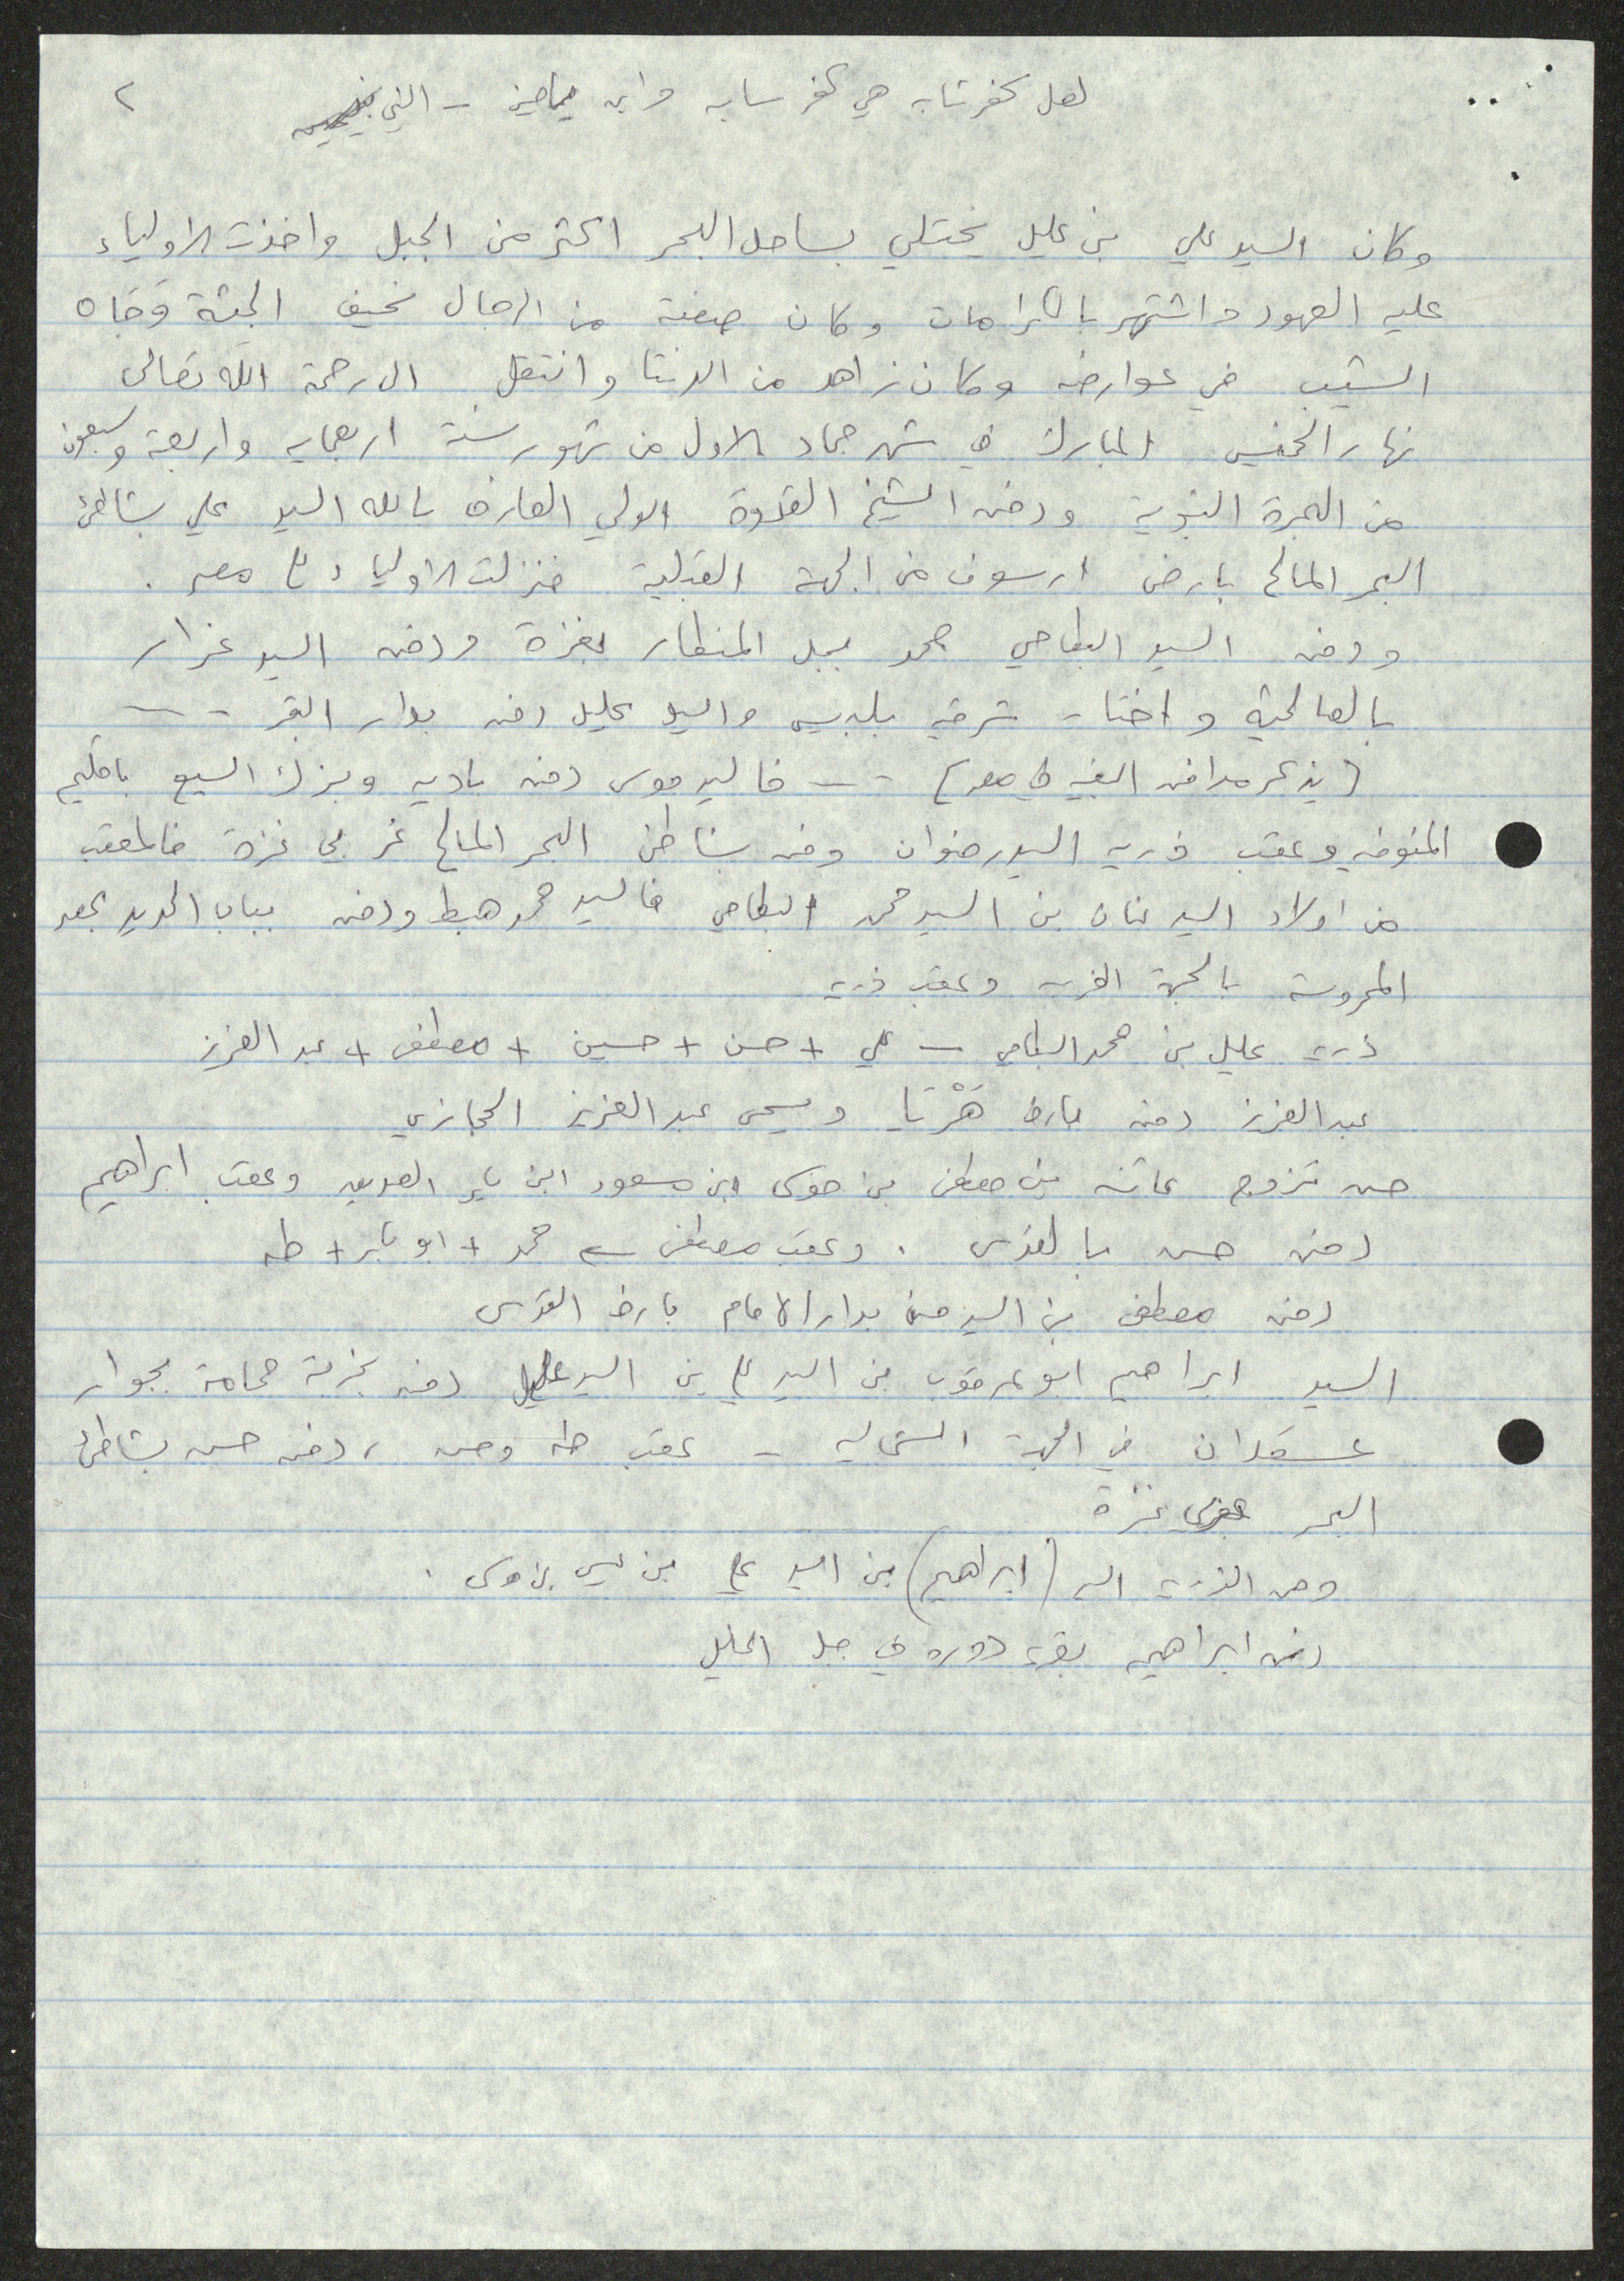 ٢
لعل كفر شابه هي كفر سابه واين يماضين - النبي
وكان السيد علي بن عليل يختلي بساحل البحر اكثر من الجبل واخذت الاولياء
عليه العهود واشتهر بالكرامات وكان صفته من الرجال نحيف الجثة وخاه
الشيب في عوارضه وكان زاهد من الدنيا وانتقل الى رحمة الله تعالى
نهار الخميس المبارك في شهر جماد الاول من شهور سنة اربعمايه واربعة وسبعون
من الهجرة النبوية ودفن الشيخ القدوة الولي العارف بالله السيد علي بشاطئ
البحر المالح بارض ارسوف من الجهة القبلية فنزلت الاولياء مصر .
ودفن السيد البطاحي محمد بجبل المنطار بغزة ودفن السيد غزار
بالصالحية و شرقي بلبيس والسيد عليل دفن بدار البقر - -
(يذكر مدافن البقية في مصر) - - فالسيد موسى دفن باديه وبزك السبع باقليم
المنوفيه وعقب ذريه السيد رضوان دفن بشاطئ البحر المالح غربي غزة فالمعقب
من اولاد السيد عنان بن السيد محمد البطاحي فالسيد محمد هبط ودفن بباب الحديد بمصر
المحروسة بالجهة الغربيه وعقب ذريه
ذرية عليل بن محمد البطاحي - علي + حسن + حسين + مصطفى + عبد العزيز
عبد العزيز دفن بارض هَرْبَيا ويسمى عبد العزيز الحجازي
حسن تزوج عائشه بنت مصطفى بن موسى ابن مسعود ابن العديه وعقب ابراهيم
دفن حسن بالقدس . وعقب مصطفى محمد + ابو بكر + طه
دفن مصطفى بن السيد حسن بدار الامام بارض القدس
السيد ابراهيم ابو عرقوب بن السيد علي بن السيد عليل دفن بخربة حمامة بجوار
عسقلان في الجهة الشماليه - عقب طه وحسن ، دفن حسن بشاطئ
البحر غزة
ومن الذرية السيد (ابراهيم) بن السيد علي بن عيسى بن موسى .
دفن ابراهيم بقرية دوره في جبل الخليل